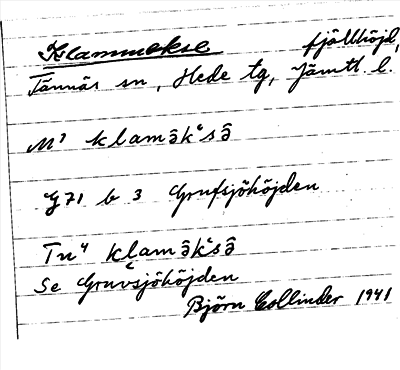 Klammekse fjällhöjd,
Tännäs sn, Hede tg, Jämtl. l.
M¹ klamə̂kˁsə̂
G71 b 3 Grufsjöhöjden
Tn⁴ klamə̂kˁsə̂
Se Gruvsjöhöjden
Björn Collinder 1941